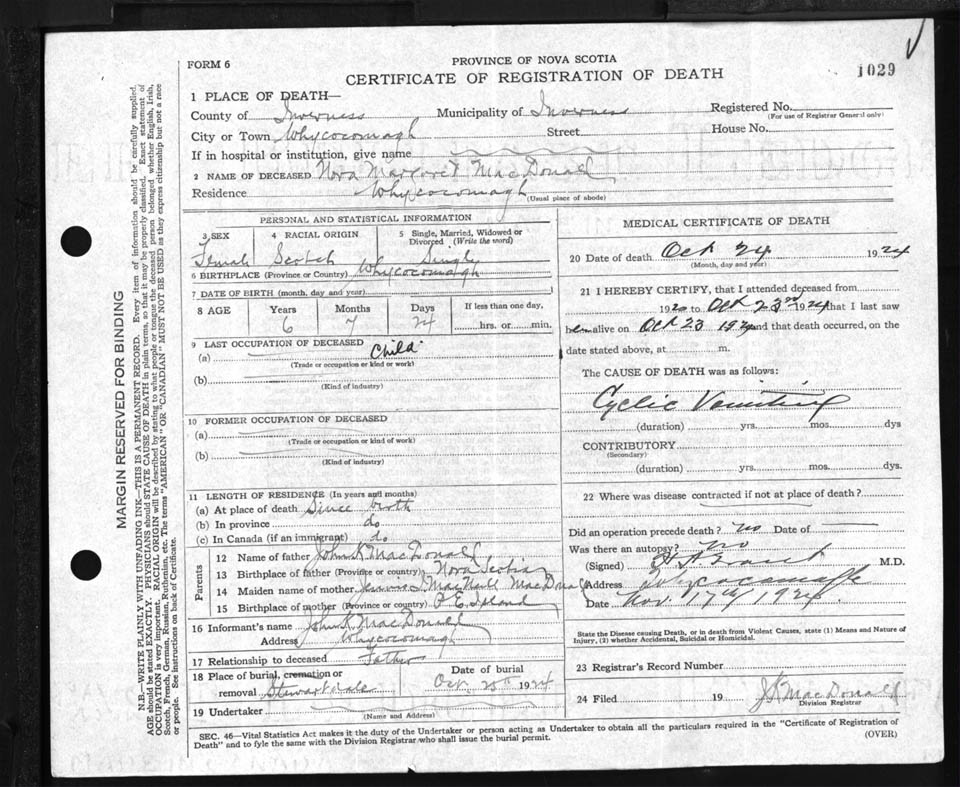 FORM 6
PROVINCE OF NOVA SCOTIA
CERTIFICATE OF REGISTRATION OF DEATH
1029
1 PLACE OF DEATH—
County of Inverness Municipality of Inverness Registered No.
(For use of Registrar General only)
City or Town Whycocomagh Street House No.
If in hospital or institution, give name
2 NAME OF DECEASED Nora Margaret MacDonald
Residence Whycocomagh
(Usual place of abode)
PERSONAL AND STATISTICAL INFORMATION
3 SEX 4 RACIAL ORIGIN 5 Single, Married, Widowed or Divorced (Write the word)
Female Scotch Single
6 BIRTHPLACE (Province or Country) Whycocomagh
7 DATE OF BIRTH (month, day and year)
8 AGE Years Months Days If less than one day,
6 7 24 hrs. or min.
9 LAST OCCUPATION OF DECEASED
(a) Child
(Trade or occupation or kind or work)
(b)
(Kind of industry)
10 FORMER OCCUPATION OF DECEASED
(a)
(Trade or occupation or kind of work)
(b)
(Kind of industry)
11 LENGTH OF RESIDENCE (In years and months)
(a) At place of death Since birth
(b) In province do
(c) In Canada (if an immigrant) do
Parents
12 Name of father John K MacDonald
13 Birthplace of father (Province or country) Nova Scotia
14 Maiden name of mother MacNeill MacDonald
15 Birthplace of mother (Province or country) P. E. Island
16 Informant's name John K MacDonald
Address Whycocomagh
17 Relationship to deceased Father
18 Place of burial, cremation or removal Stewartdale
Date of burial
Oct. 25th 1924
19 Undertaker
(Name and Address)
MEDICAL CERTIFICATE OF DEATH
20 Date of death Oct 24 1924
(Month, day and year)
21 I HEREBY CERTIFY, that I attended deceased from
192 to Oct 23rd 1924 that I last saw
her alive on Oct 23 1924 and that death occurred, on the
date stated above, at m.
The CAUSE OF DEATH was as follows:
Cyclic Vomiting
(duration) yrs. mos. dys
CONTRIBUTORY
(Secondary)
(duration) yrs. mos. dys.
22 Where was disease contracted if not at place of death?
Did an operation precede death? no Date of
Was there an autopsy? no
(Signed) M.D.
Address Whycocomagh
Date Nov. 17th 1924.
State the Disease causing Death, or in death from Violent Causes, state (1) Means and Nature of
Injury, (2) whether Accidental, Suicidal or Homicidal.
23 Registrar's Record Number
24 Filed 19 J K MacDonald
Division Registrar
SEC. 46—Vital Statistics Act makes it the duty of the Undertaker or person acting as Undertaker to obtain all the particulars required in the "Certificate of Registration of
Death" and to fyle the same with the Division Registrar who shall issue the burial permit.
(OVER)
MARGIN RESERVED FOR BINDING
N.B.—WRITE PLAINLY WITH UNFADING INK—THIS IS A PERMANENT RECORD. Every item of information should be carefully supplied.
AGE should be stated EXACTLY. PHYSICIANS should STATE CAUSE OF DEATH in plain terms, so that it may be properly classified. Exact statement of
OCCUPATION is very important. RACIAL ORIGIN will be described by stating to what people or tongue the deceased person belonged whether English, Irish,
Scotch, French, German, Russian, Ruthenian, etc. The terms "AMERICAN" OR "CANADIAN" MUST NOT BE USED as they express citizenship but not a race
or people. See instructions on back of Certificate.